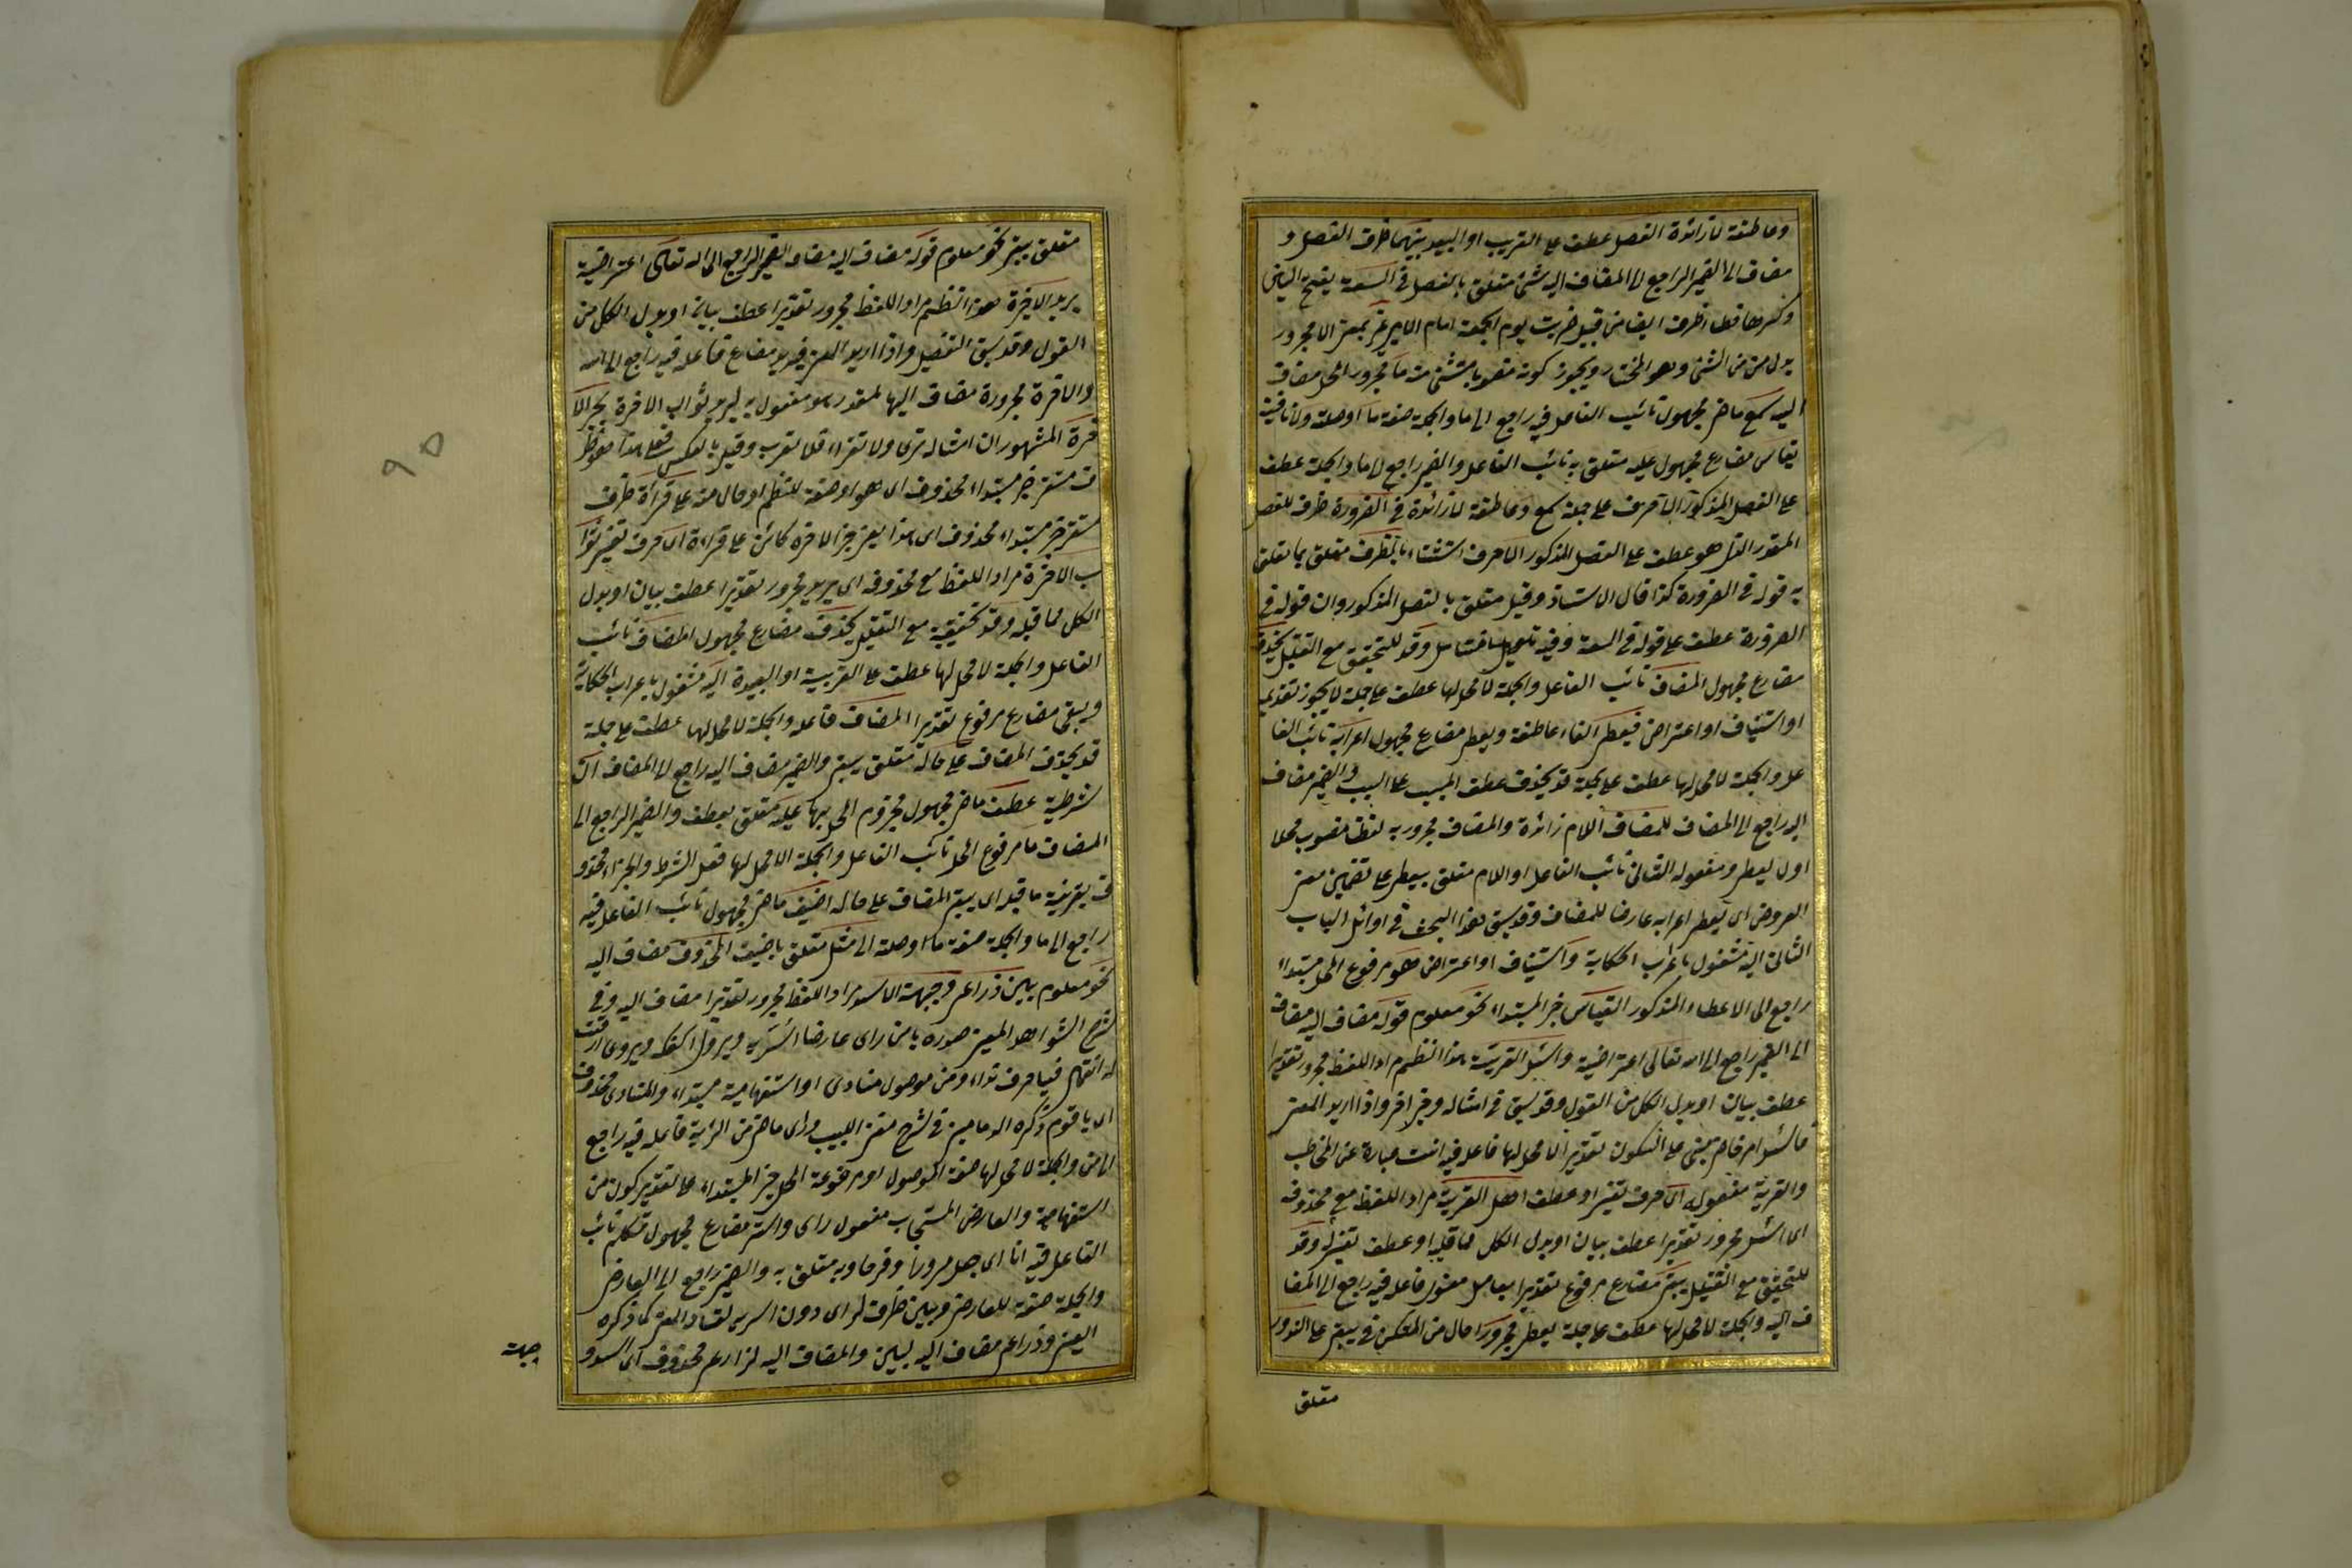 وعاطفة لا زائدة الفصل عطف على القريب او البعيد بينهما ظرف الفصل و
مضاف الى الضمير الراجع الى المضاف اليه بشئ متعلق بالفصل فى السعة بفتح السين
وكسرها فيها ظرف ايضا من قبيل ضربت يوم الجمعة امام الامير غير بمعنى الا مجرور
بدل من من الشئ وهو المختار ويجوز كونه منصوبا مستثنى منه ما مجرور المحل مضاف
اليه سمع ماض مجهول نائب الفاعل فيه راجع الى ما والجملة صفة ما او صلة ولا نافية
يقاس مضارع مجهول عليه متعلق به نائب الفاعل والضمير راجع الى ما والجملة عطف
على الفصل المذكور الا حرف على جملة سمع وعاطفة لا زائدة فى الضرورة ظرف للفصل
المقدر الذى هو عطف على الفصل المذكور الا حرف استثناء بالظرف متعلق بما يتعلق
به قوله فى الضرورة كذا قال الاستاذ وقيل متعلق بالفصل المذكور وان قوله فى
الضرورة عطف على قوله فى السعة وفيه وقد للتحقيق مع التقليل يحذف
مضارع مجهول المضاف نائب الفاعل والجملة لا محل لها عطف على جملة لا يجوز تقديم
او استيناف او اعتراض فيعطى الفاء عاطفة ويعطى مضارع مجهول اعرابه نائب الفا
عل والجملة لا محل لها عطف على جملة قد يحذف عطف المسبب على السبب والضمير مضاف
اليه راجع الى المضاف للمضاف اللام زائدة والمضاف مجرور به لفظا منصوب محلا
اول ليعطى ومفعوله الثانى نائب الفاعل او اللام متعلق بيعطى على تضمين معنى
العروض اى يعطى اعرابه عارضا للمضاف وقد سبق هذا البحث فى اوائل الباب
الثانى اليه مشغول باعراب الحكاية واستيناف او اعتراض هو مرفوع المحل مبتداء
راجع الى الاعطاء المذكور القياس خبر المبتداء نحو معلوم قوله مضاف اليه مضاف
الى الضمير راجع الى الله تعالى اعتراضية واسئل القرية هذا النظم مراد اللفظ مجرور تقديرا
عطف بيان او بدل الكل من القول وقد سبق فى امثاله وجه اخر واذا اريد المعنى
فاسئل امر حاضر مبنى على السكون تقديرا لا محل لها فاعله فيه انت عبارة عن المخاطب
والقرية مفعوله اى حرف تفسير او عطف اهل القرية مراد اللفظ مع محذوفه
اى اسئل مجرور تقديرا عطف بيان او بدل الكل مما قبله او عطف تفسير له وقد
للتحقيق مع التقليل يبقى مضارع مرفوع تقديرا بعامل معنوى فاعله فيه راجع الى المضا
ف اليه والجملة لا محل لها عطف على جملة يعطى مجرورا حال من المستكن فى يبقى على الندور
متعلق
متعلق بيبقى نحو معلوم قوله مضاف اليه مضاف الضمير الراجع الى الله تعالى اعتراضية
يريد الاخرة هذا النظم مراد اللفظ مجرور تقديرا عطف بيان او بدل الكل من
القول وقد سبق التفصيل واذا اريد المعنى فيريد مضارع فاعله فيه راجع الى الله
والاخرة مجرورة مضاف اليها لمقدر هو مفعول به ليريد ثواب الاخرة بجر الا
خرة المشهور ان امثاله ترى ولا تقراء فلا تعرب وقيل بالعكس فعلى هذا هو ظر
ف مستقر خبر مبتداء محذوف اى هو او صفة للنظم او حال منه على قراءة ظرف
مستقر خبر مبتداء محذوف اى هذا يعنى جر الاخرة كائن على قراءة اى حرف تفسير ثوا
ب الاخرة مراد اللفظ مع محذوفه اى يريد مجرور تقديرا عطف بيان او بدل
الكل مما قبله وقد تحقيقية مع التقليل يحذف مضارع مجهول المضاف نائب
الفاعل والجملة لا محل لها عطف على القريبة او البعيدة اليه مشغول باعراب الحكاية
ويبقى مضارع مرفوع تقديرا المضاف فاعله والجملة لا محل لها عطف على جملة
قد يحذف المضاف على حاله متعلق بيبقى والضمير مضاف اليه راجع الى المضاف ان
شرطية عطف ماض مجهول مجزوم المحل بها عليه متعلق بعطف والضمير الراجع الى
المضاف ما مرفوع المحل نائب الفاعل والجملة لا محل لها فعل الشرط والجزاء محذو
ف بقرينة ما قبله اى يبقى المضاف على حاله اضيف ماض مجهول نائب الفاعل فيه
راجع الى ما والجملة صفة ما او صلة الى مثل متعلق باضيف المحذوف مضاف اليه
نحو معلوم بين ذراعى وجبهة الاسد مراد اللفظ مجرور تقديرا مضاف اليه وفى
شرح الشواهد للعينى صدره يا من راى عارضا اسر به ويروى اكفكفه ويروى ارقت
له انتهى فيا حرف نداء ومن موصول منادى او استفهامية مبتداء والمنادى محذوف
اى يا قوم ذكره الدمامينى فى شرح مغنى اللبيب وراى ماض من الرؤية فاعله فيه راجع
الى من والجملة لا محل لها صفة الموصول او مرفوعة المحل خبر المبتداء على تقدير كون من
استفهامية والعارض السحاب مفعول راى واسر مضارع مجهول متكلم نائب
الفاعل فيه انا اى جعل مسرورا وفرحا وبه متعلق به والضمير راجع الى العارض
والجملة صفة للعارض وبين ظرف لراى دون اسر به لفساد المعنى كما ذكره
العينى وذراعى مضاف اليه لبين والمضاف اليه لذراعى محذوف اى الاسد و
جبهة
٩٥